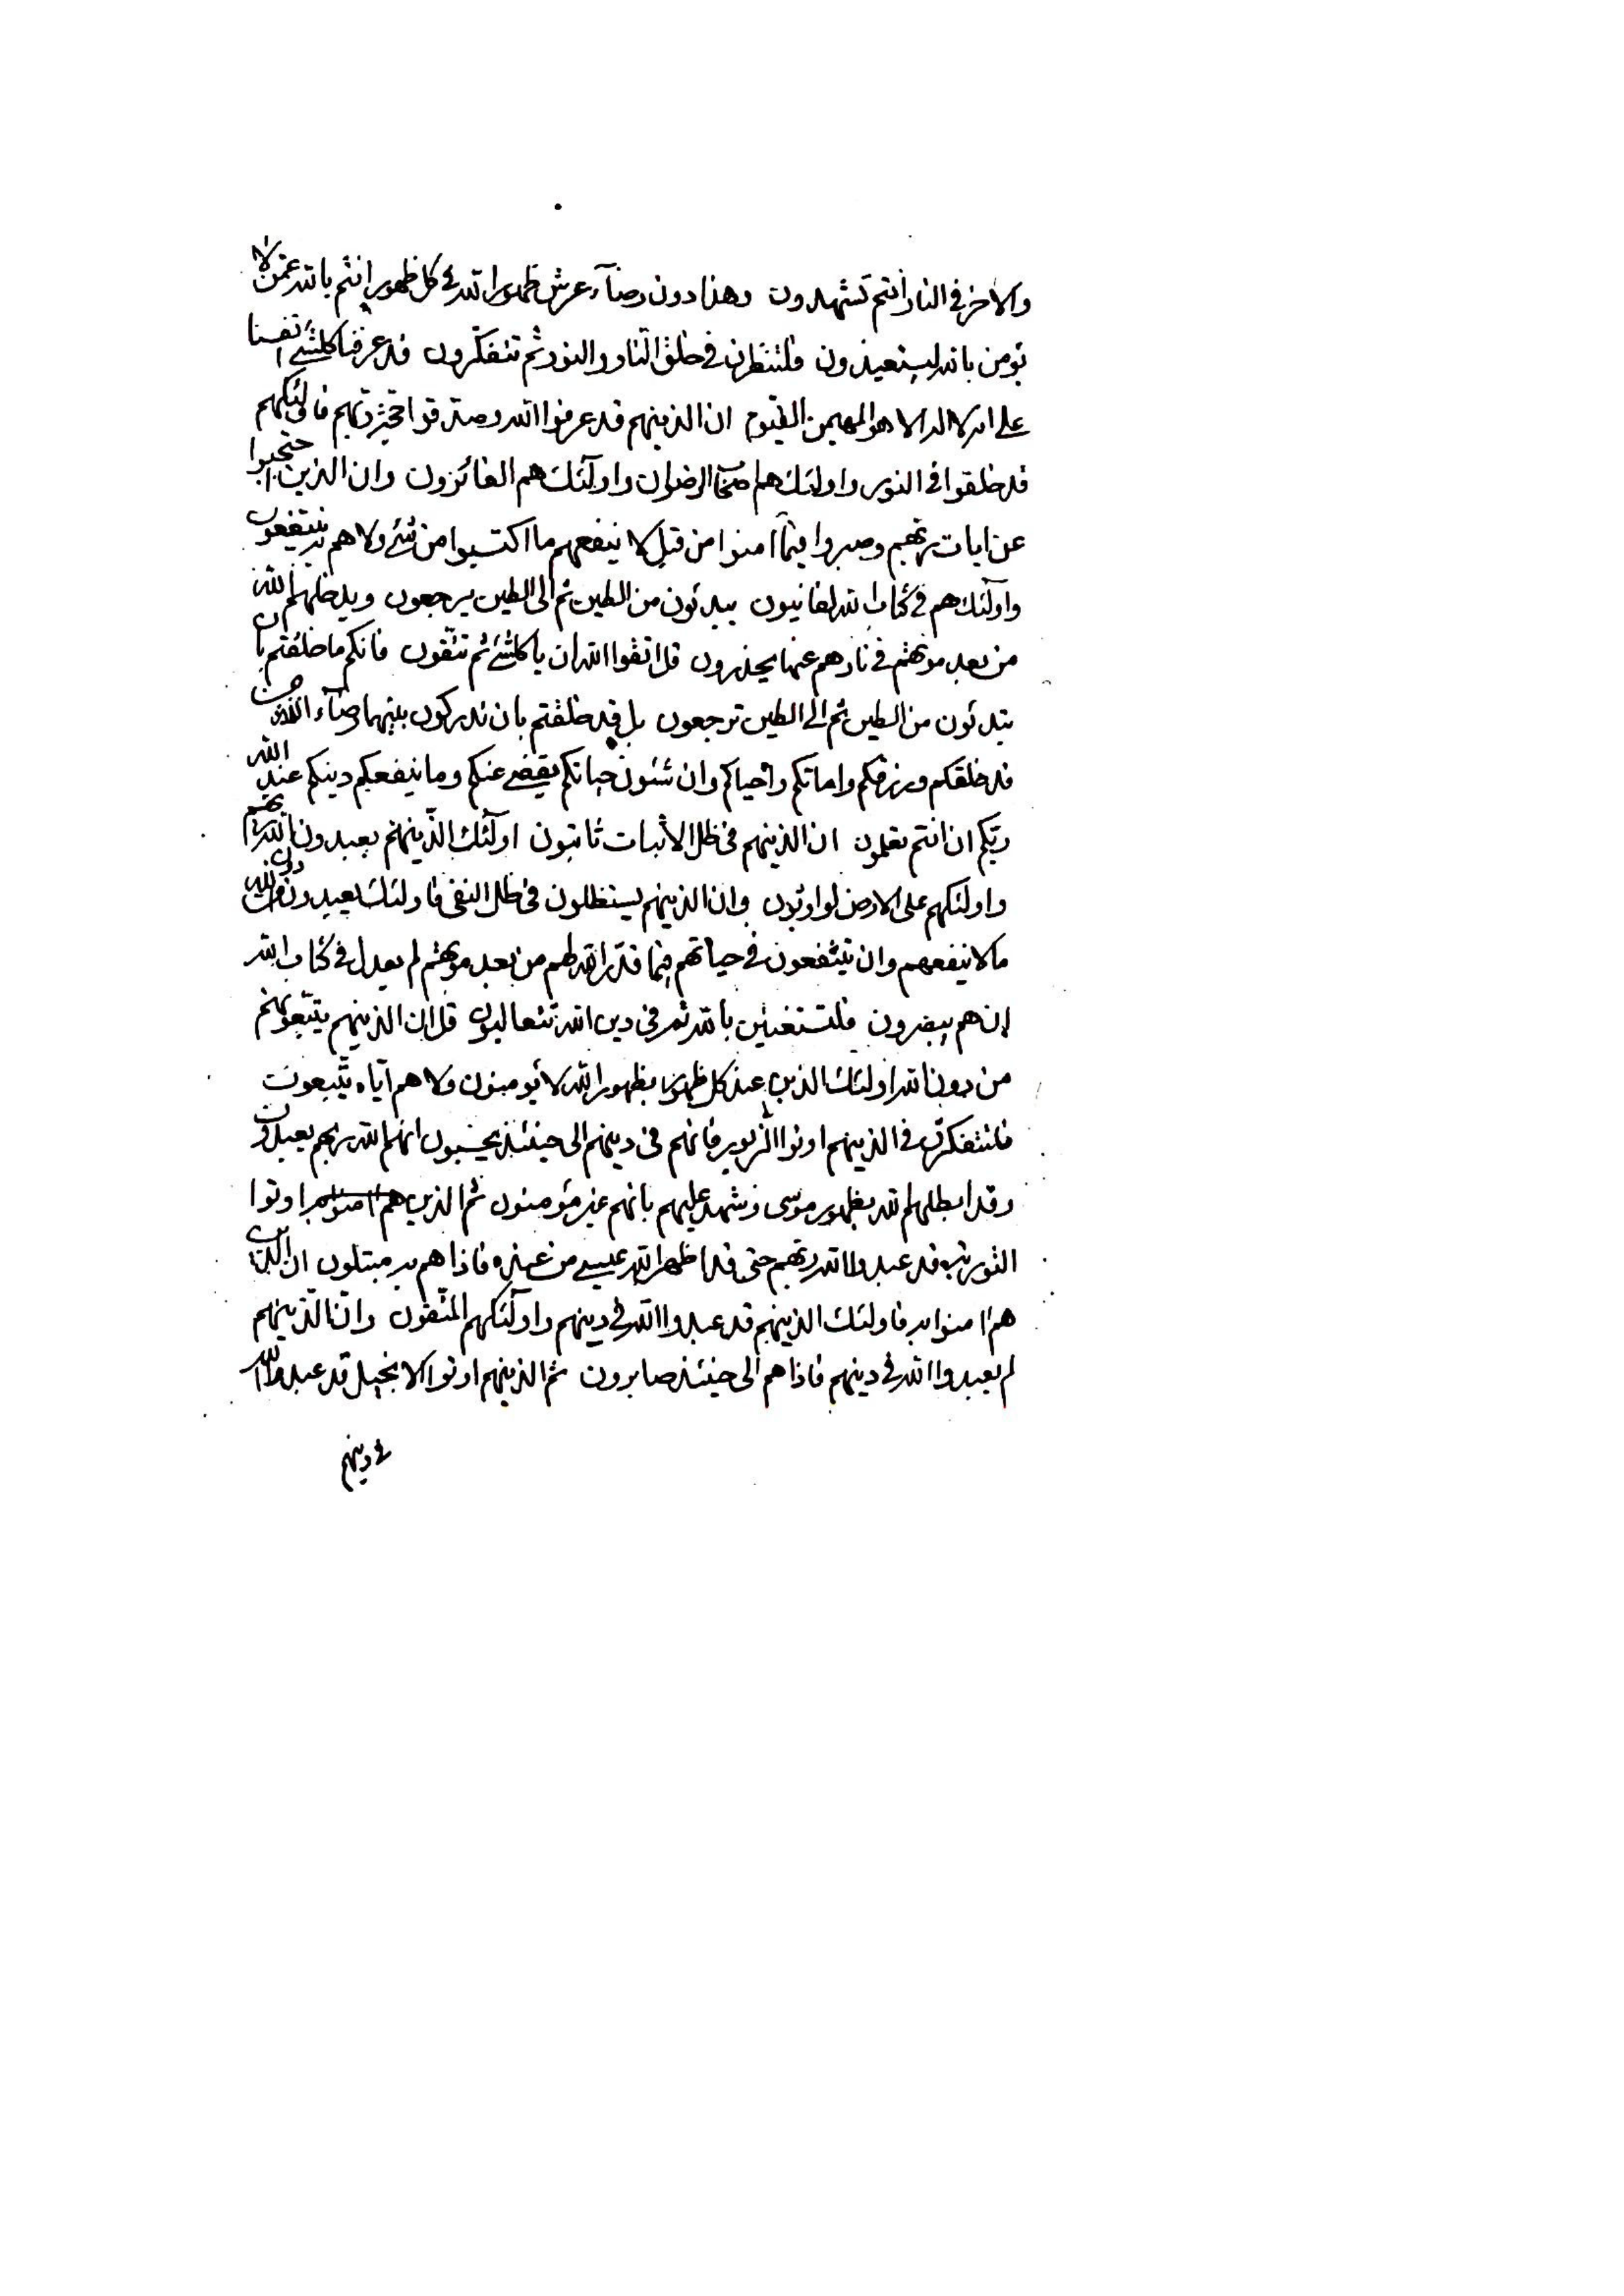 والاخر في النار انتم تشهدون وهذا دون رضآء عرش ظهور الله في كل ظهور انتم بالله عمن لا
يؤمن بالله لتستعيذون فلتنظرن في خلق النار والنور ثم تتفكرون قد عرفنا كلشئ انفسنا
على انه لا اله الا هو المهيمن القيوم ان الذينهم قد عرفوا الله وصدقوا حجة ربهم فاولئكهم
قد خلقوا في النور واولئك هم اصحاب الرضوان واولئك هم الفائزون وان الذين احتجبوا
عن ايات ربهم وصبروا فيما امنوا من قبل لا ينفعهم ما اكتسبوا من شئ ولا هم به ينتفعون
واولئك هم في كتاب الله لفانيون يبدئون من الطين ثم الى الطين يرجعون ويدخلهم الله
من بعد موتهم في نار هم عنها يحذرون قل اتقوا الله ان يا كلشئ ثم تتقون فانكم ما خلقتم بان
تبدئون من الطين ثم الى الطين ترجعون بل قد خلقتم بان تدركون بينهما رضآء الله الذي
قد خلقكم ورزقكم واماتكم واحياكم وان شئون حياتكم يقضى عنكم وما ينفعكم دينكم عند الله
ربكم ان انتم تعلمون ان الذينهم في ظل الاثبات ثابتون اولئك الذينهم يعبدون الله ربهم
واولئكهم على الارض لوارثون وان الذينهم يستظلون في ظل النفي فاولئك يعبدون من دون الله
ما لا ينفعهم وان ينتفعون في حياتهم فيما قدر الله لهم من بعد موتهم لم يعدل في كتاب الله
ان هم يبصرون فلتستغنين بالله ثم في دين الله تتعاليون قل ان الذينهم يتبعونهم
من دون الله اولئك الذين عند كل ظهور بظهور الله لا يؤمنون ولا هم اياه يتبعون
فلتتفكرن في الذينهم اوتوا الزبور فانهم في دينهم الى حينئذ يحسبون انهم الله ربهم يعبدون
وقد ابطلهم الله بظهور موسى وشهد عليهم بانهم غير مؤمنون ثم الذين هم اوتوا
التورية قد عبدوا الله ربهم حتى قد اظهر الله عيسى من عنده فاذا هم به مبتلون ان الذين
هم امنوا به فاولئك الذينهم قد عبدوا الله في دينهم واولئكهم المتقون وان الذينهم
لم يعبدوا الله في دينهم فاذا هم الى حينئذ صابرون ثم الذينهم اوتوا الانجيل قد عبدوا الله
في دينهم